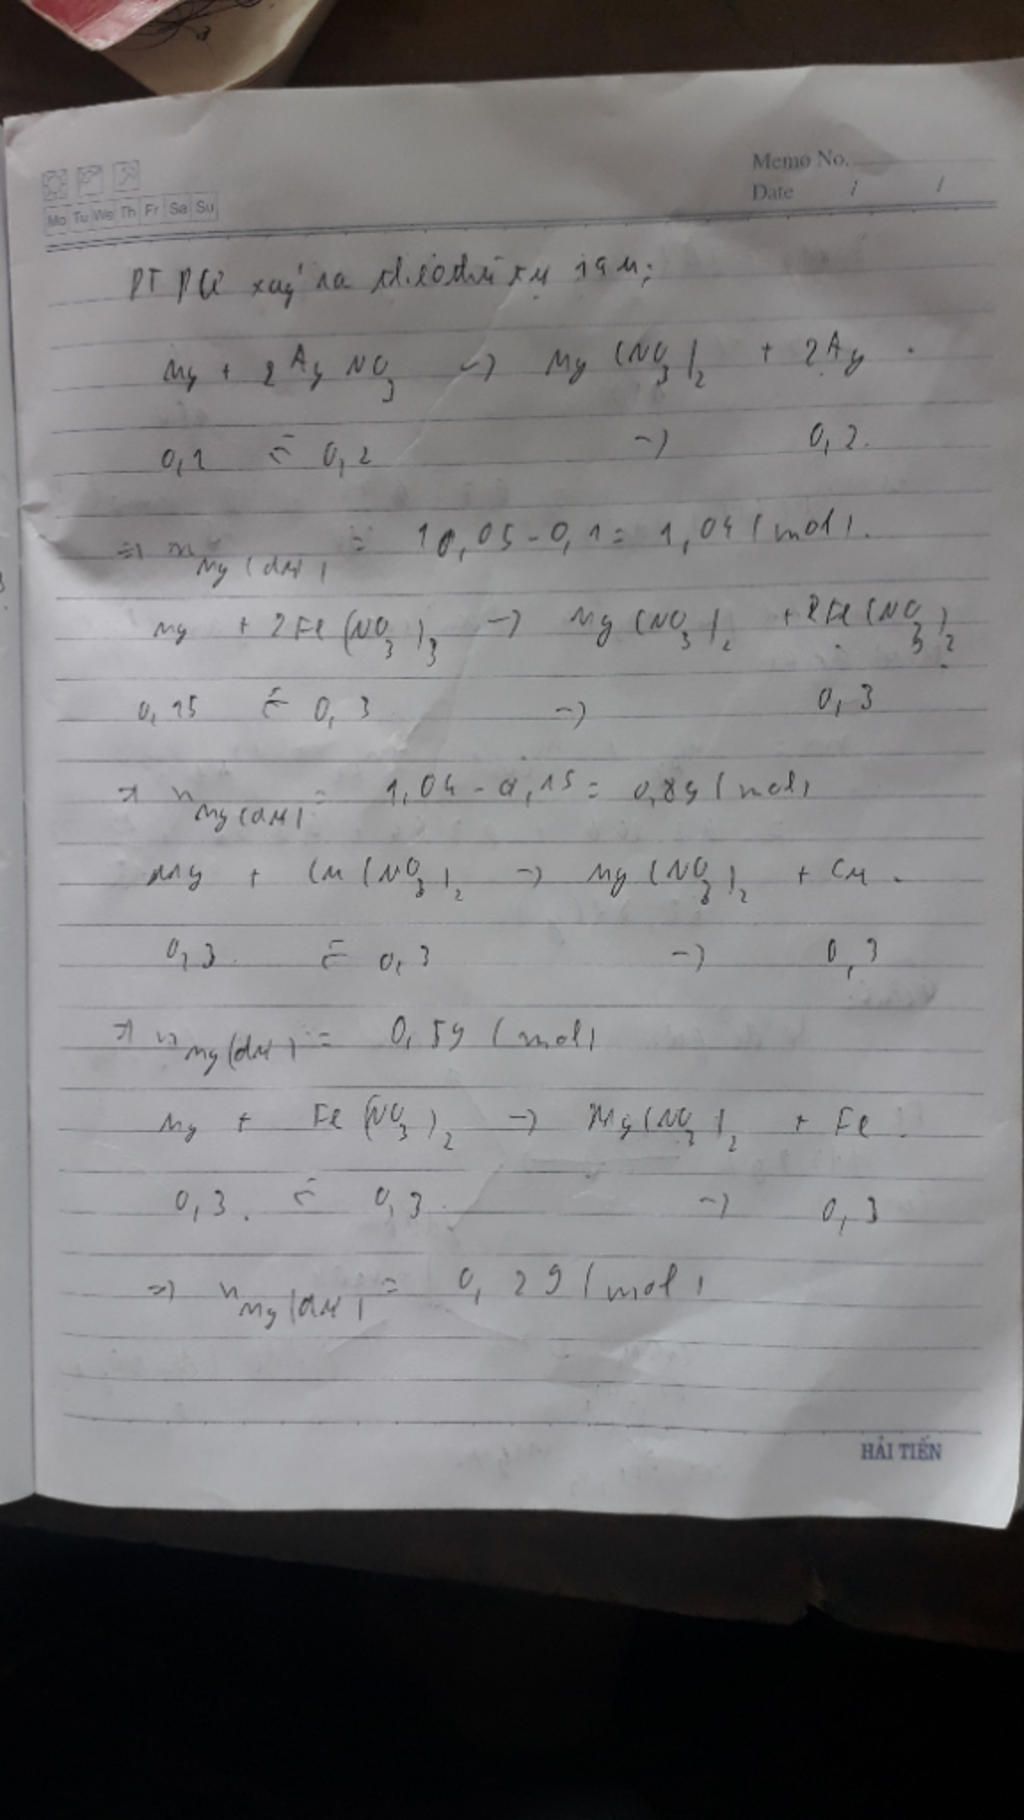 Memo No.
Date / /
Mo Tu We Th Fr Sa Su
PTPƯ xảy ra theo thứ tự sau:
Mg + 2AgNO3 → Mg(NO3)2 + 2Ag.
0,1 ← 0,2 → 0,2.
⇒ nMg(dư) = 1,05 - 0,1 = 1,04 (mol).
Mg + 2Fe(NO3)3 → Mg(NO3)2 + 2Fe(NO3)2.
0,15 ← 0,3 → 0,3
⇒ nMg(dư) = 1,04 - 0,15 = 0,89 (mol)
Mg + Cu(NO3)2 → Mg(NO3)2 + Cu.
0,3. ← 0,3 → 0,3
⇒ nMg(dư) = 0,59 (mol)
Mg + Fe(NO3)2 → Mg(NO3)2 + Fe.
0,3. ← 0,3. → 0,3
⇒ nMg(dư) = 0,29 (mol)
HẢI TIẾN